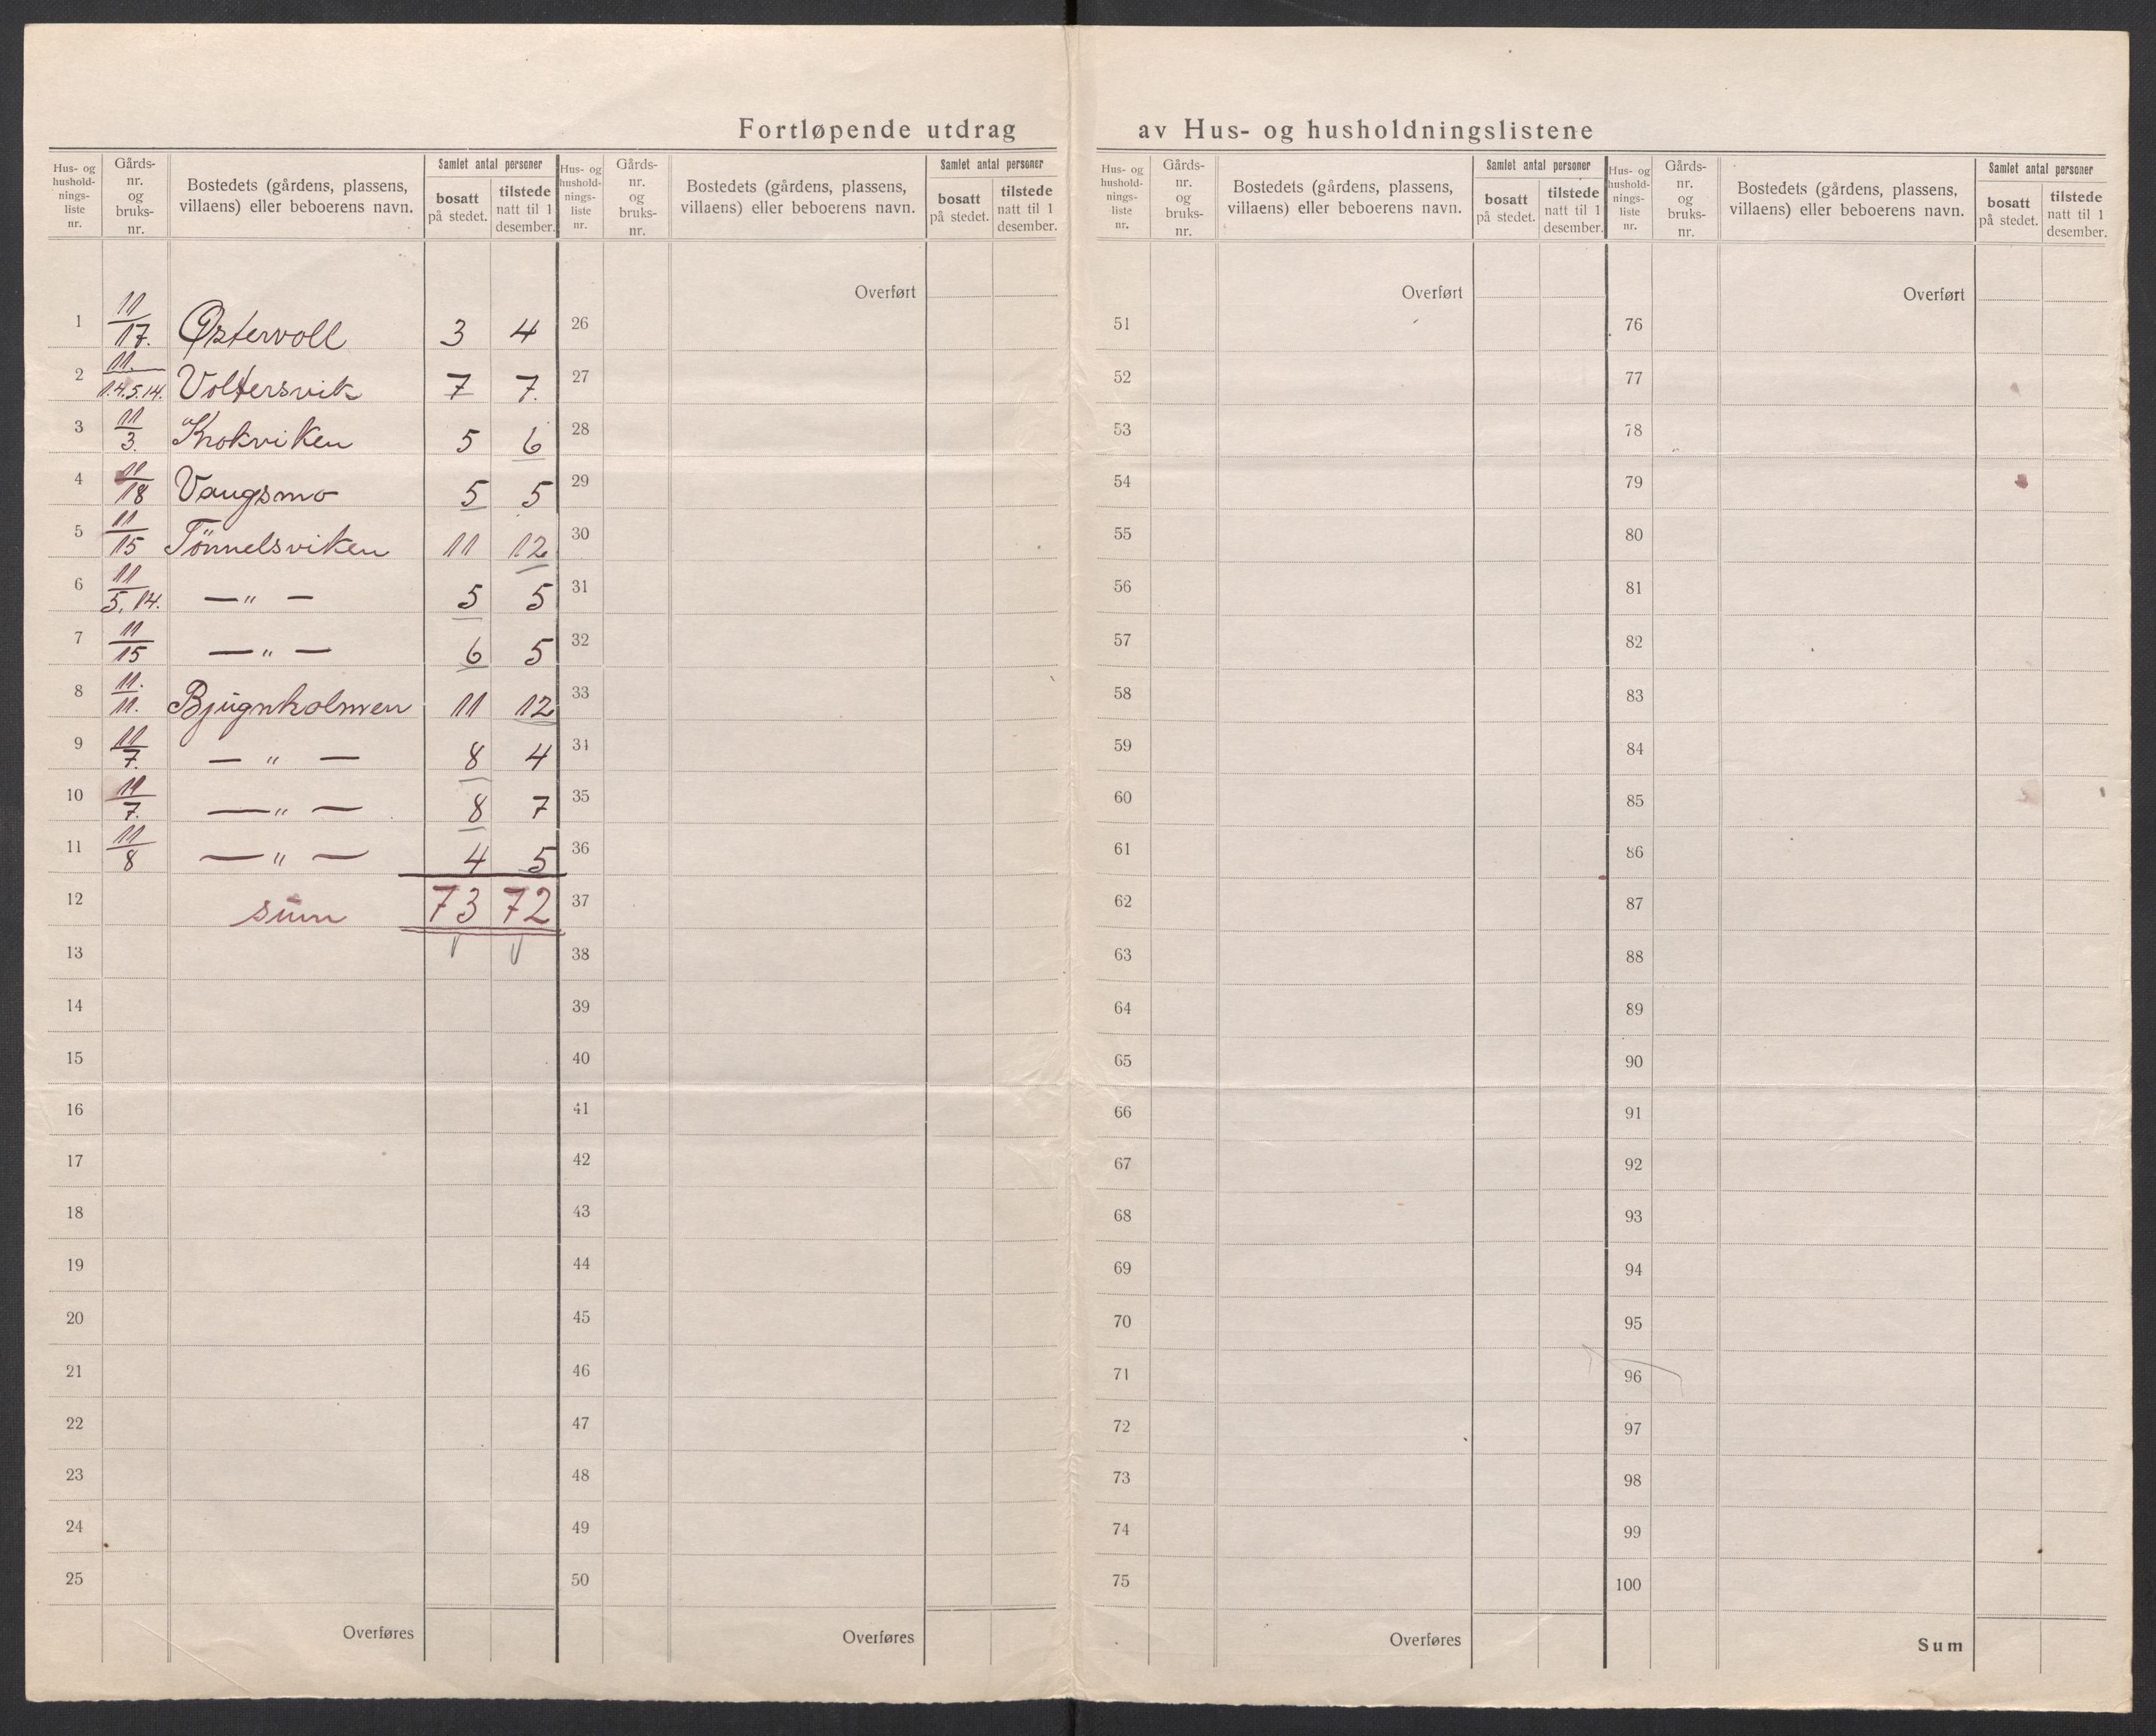 Fortløpende utdrag av Hus- og husholdningslistene
Hus- og husholdnings-liste nr. Gårds-nr. og bruks-nr. Bostedets (gårdens, plassens, villaens) eller beboerens navn. Samlet antal personer bosatt på stedet. tilstede natt til 1 desember.
Hus- og husholdnings-liste nr. Gårds-nr. og bruks-nr. Bostedets (gårdens, plassens, villaens) eller beboerens navn. Samlet antal personer bosatt på stedet. tilstede natt til 1 desember.
Hus- og husholdnings-liste nr. Gårds-nr. og bruks-nr. Bostedets (gårdens, plassens, villaens) eller beboerens navn. Samlet antal personer bosatt på stedet. tilstede natt til 1 desember.
Hus- og husholdnings-liste nr. Gårds-nr. og bruks-nr. Bostedets (gårdens, plassens, villaens) eller beboerens navn. Samlet antal personer bosatt på stedet. tilstede natt til 1 desember.
Overført Overført Overført
1 11/17. Østervoll 3 4 26 51 76
2 11./1.4.5.14. Voltersvik 7 7. 27 52 77
3 11/3. Krokviken 5 6 28 53 78
4 11/18 Vaugsmo 5 5 29 54 79
5 11/15 Tönnelsviken 11 12 30 55 80
6 11/5, 14. — " — 5 5 31 56 81
7 11/15 — " — 6 5 32 57 82
8 11./11. Bjugnholmen 11 12 33 58 83
9 11/7. — " — 8 4 34 59 84
10 11/7. — " — 8 7 35 60 85
11 11/8 — " — 4 5 36 61 86
12 sum 73 72 37 62 87
13 38 63 88
14 39 64 89
15 40 65 90
16 41 66 91
17 42 67 92
18 43 68 93
19 44 69 94
20 45 70 95
21 46 71 96
22 47 72 97
23 48 73 98
24 49 74 99
25 50 75 100
Overføres Overføres Overføres Sum